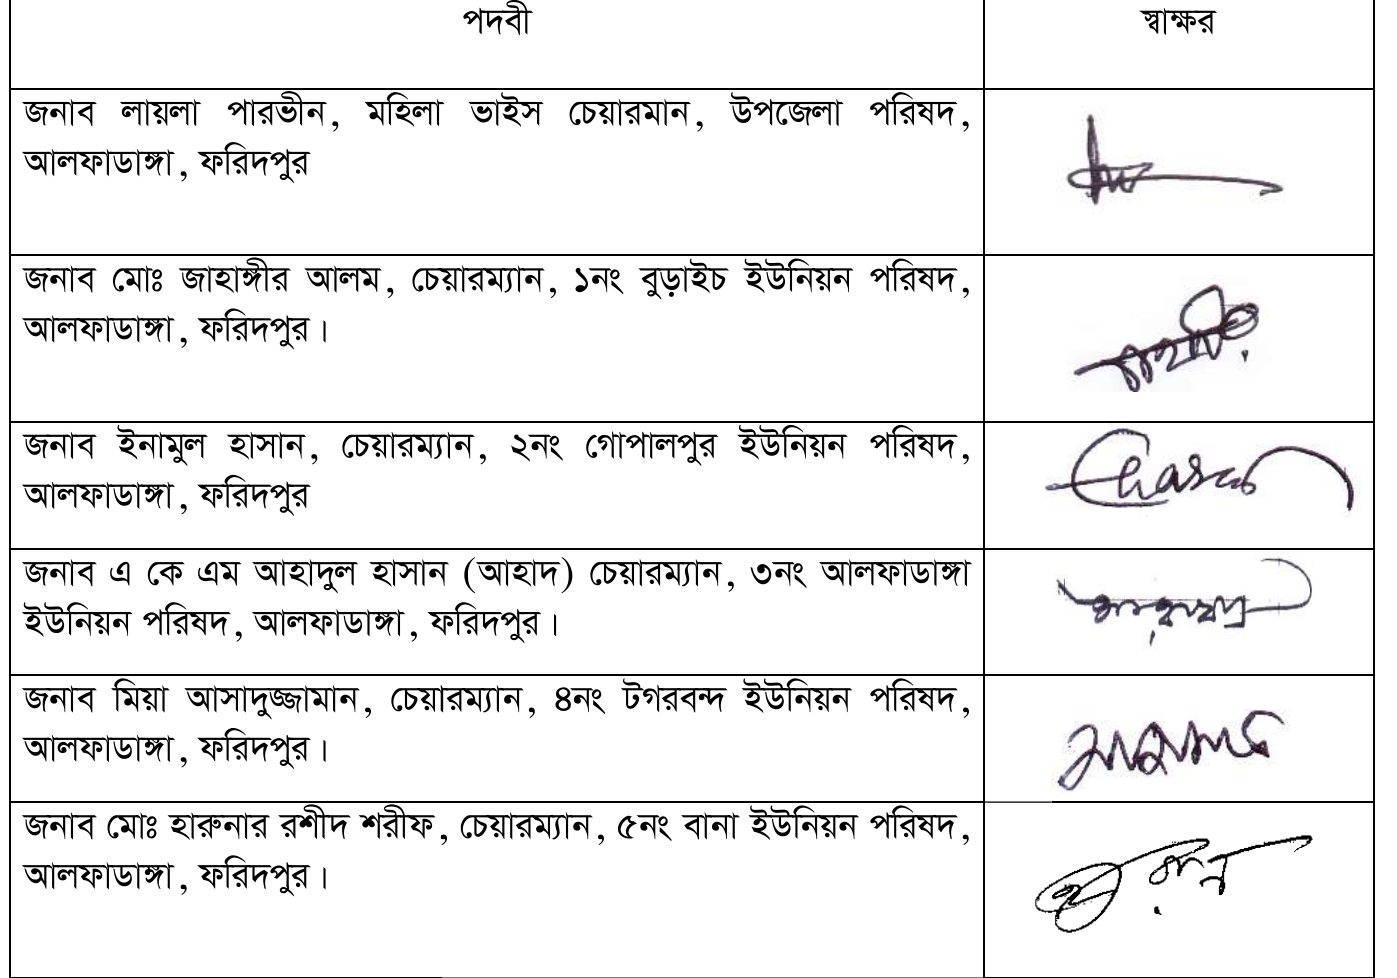 পদবী স্বাক্ষর
জনাব লায়লা পারভীন, মহিলা ভাইস চেয়ারমান, উপজেলা পরিষদ,
আলফাডাঙ্গা, ফরিদপুর
জনাব মোঃ জাহাঙ্গীর আলম, চেয়ারম্যান, ১নং বুড়াইচ ইউনিয়ন পরিষদ,
আলফাডাঙ্গা, ফরিদপুর।
জনাব ইনামুল হাসান, চেয়ারম্যান, ২নং গোপালপুর ইউনিয়ন পরিষদ,
আলফাডাঙ্গা, ফরিদপুর
জনাব এ কে এম আহাদুল হাসান (আহাদ) চেয়ারম্যান, ৩নং আলফাডাঙ্গা
ইউনিয়ন পরিষদ, আলফাডাঙ্গা, ফরিদপুর।
জনাব মিয়া আসাদুজ্জামান, চেয়ারম্যান, ৪নং টগরবন্দ ইউনিয়ন পরিষদ,
আলফাডাঙ্গা, ফরিদপুর।
জনাব মোঃ হারুনার রশীদ শরীফ, চেয়ারম্যান, ৫নং বানা ইউনিয়ন পরিষদ,
আলফাডাঙ্গা, ফরিদপুর।